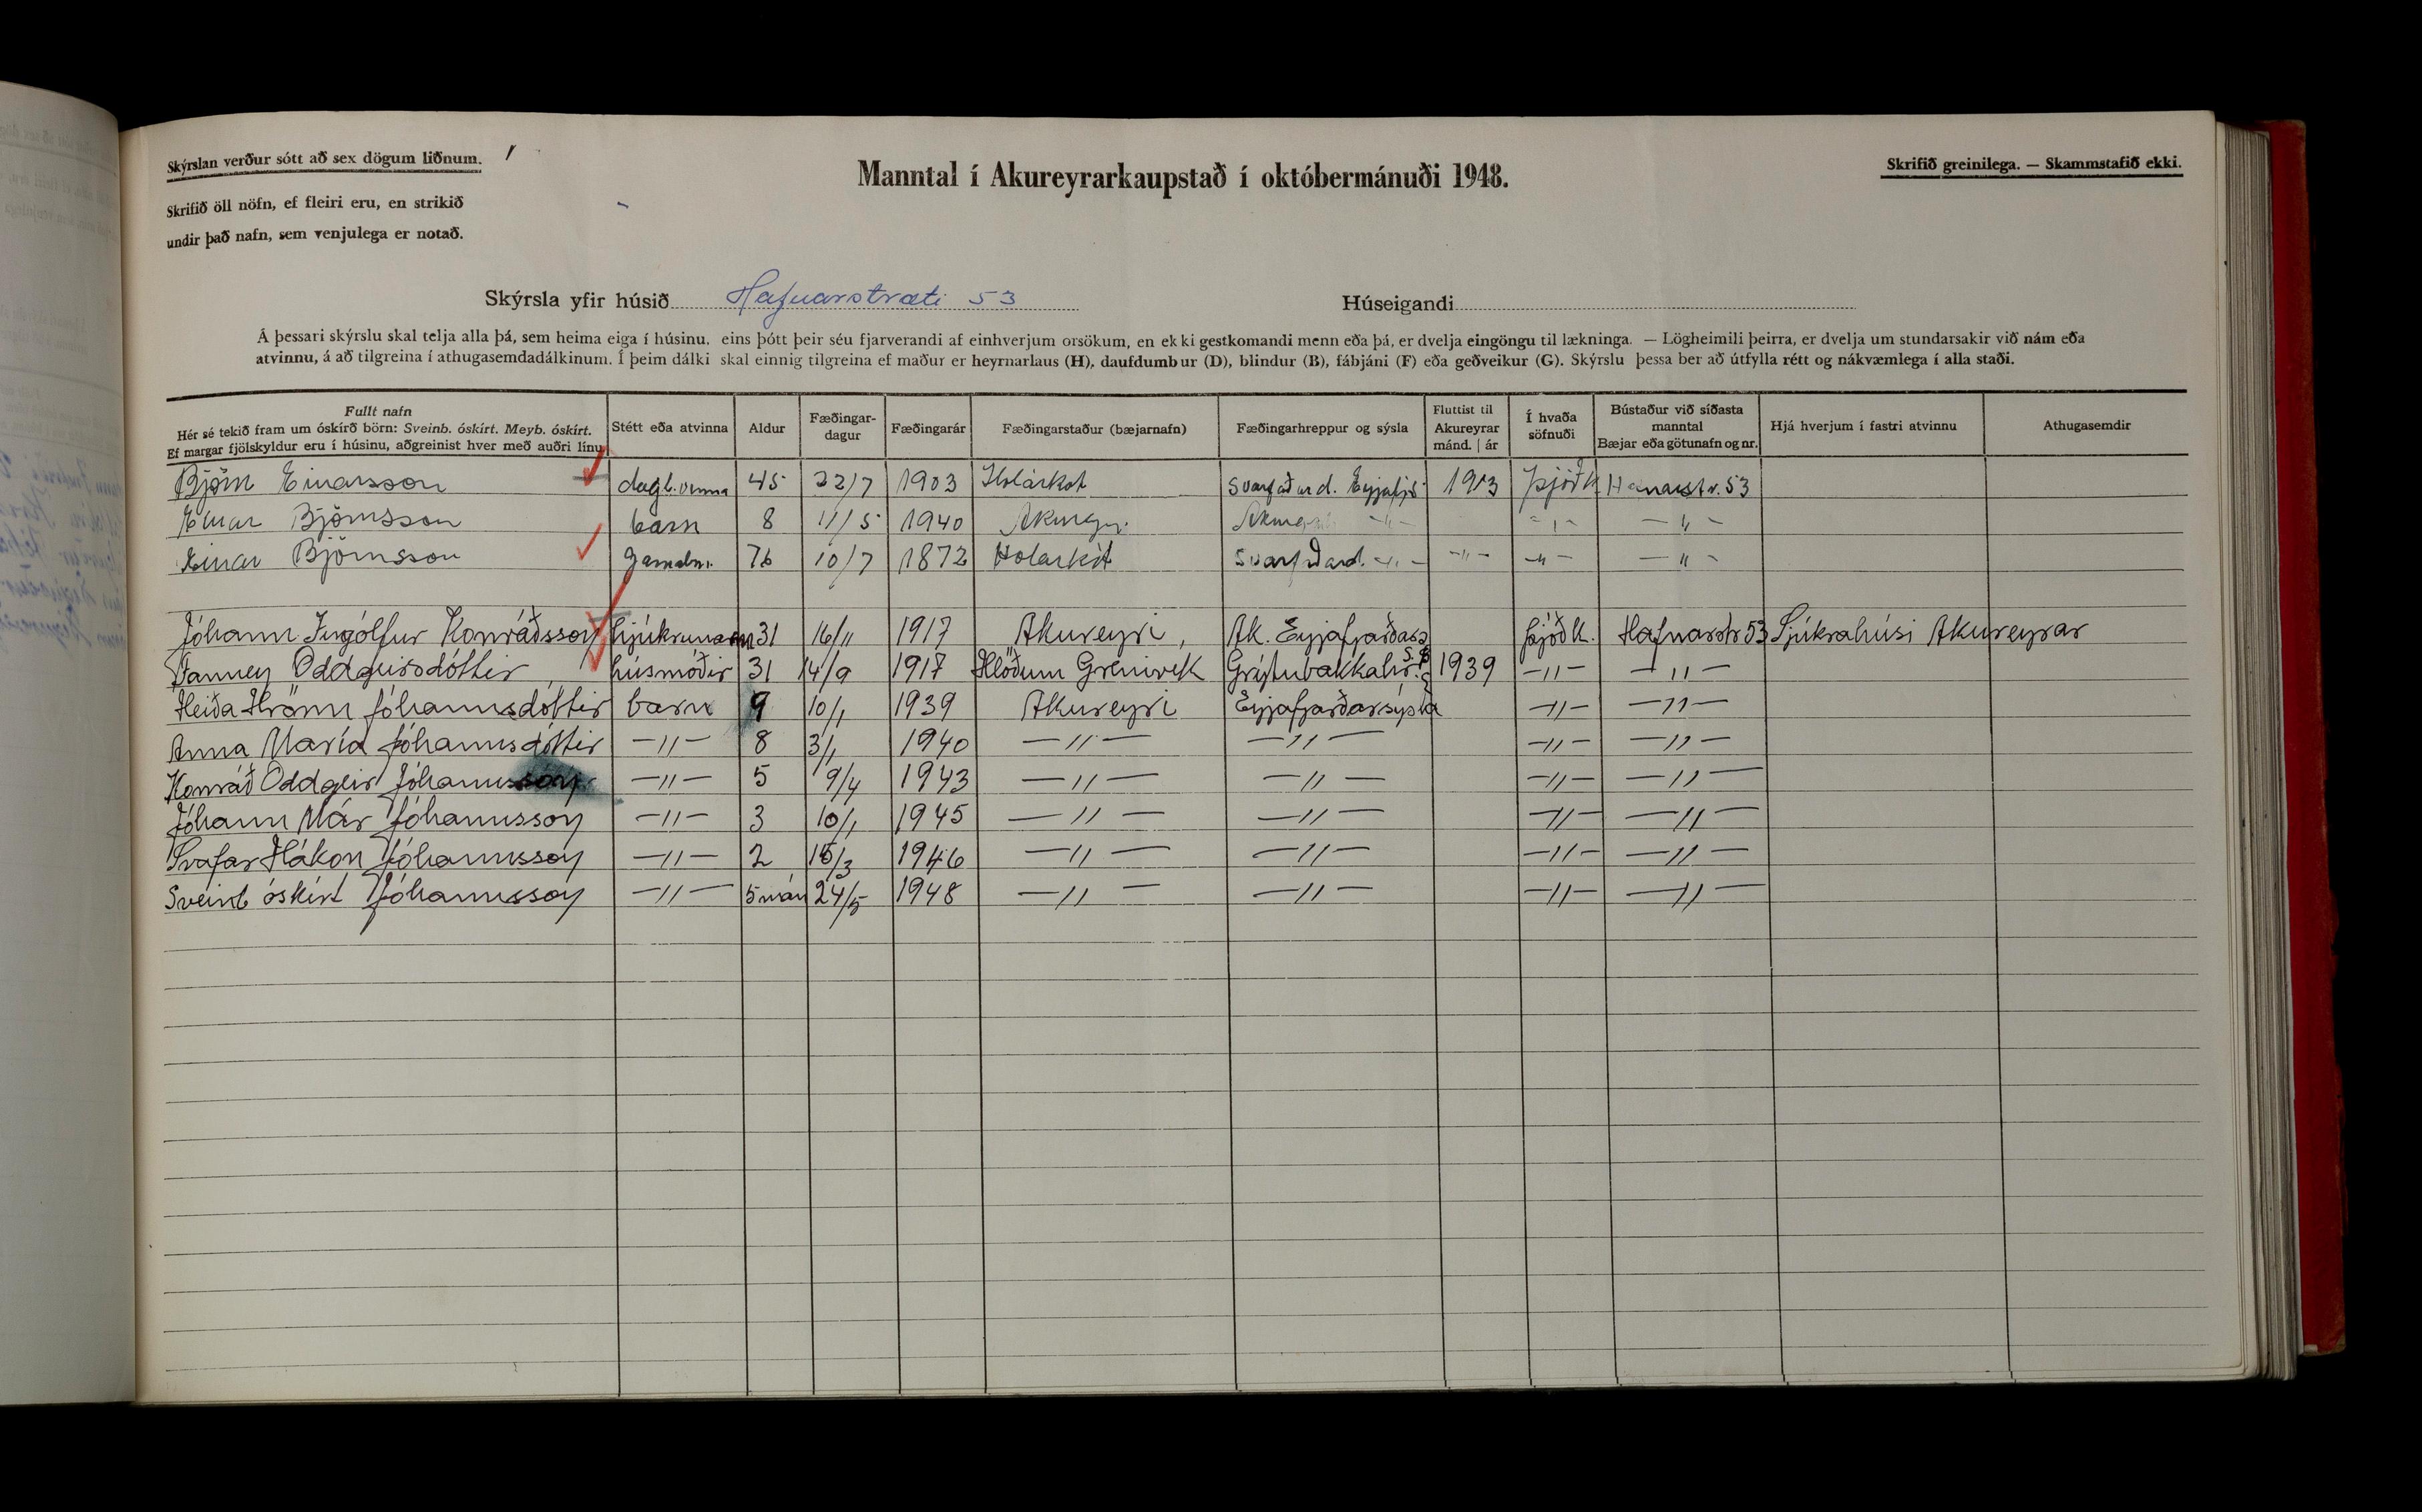 Skýrslan verður sótt að sex dögum liðnum.
Manntal í Akureyrarkaupstað í októbermánuði 1948.
Skrifið greinilega. — Skammstafið ekki.
Skrifið öll nöfn, ef fleiri eru, en strikið
undir það nafn, sem venjulega er notað.
Skýrsla yfir húsið Hafnarstræti 53 Húseigandi
Á þessari skýrslu skal telja alla þá, sem heima eiga í húsinu, eins þótt þeir séu fjarverandi af einhverjum orsökum, en ekki gestkomandi menn eða þá, er dvelja eingöngu til lækninga. — Lögheimili þeirra, er dvelja um stundarsakir við nám eða
atvinnu, á að tilgreina í athugasemdadálkinum. Í þeim dálki skal einnig tilgreina ef maður er heyrnarlaus (H), daufdumbur (D), blindur (B), fábjáni (F) eða geðveikur (G). Skýrslu þessa ber að útfylla rétt og nákvæmlega í alla staði.
Fullt nafn
Hér sé tekið fram um óskírð börn: Sveinb. óskírt. Meyb. óskírt.
Ef margar fjölskyldur eru í húsinu, aðgreinist hver með auðri línu
Stétt eða atvinna
Aldur
Fæðingar-
dagur
Fæðingarár
Fæðingarstaður (bæjarnafn)
Fæðingarhreppur og sýsla
Fluttist til
Akureyrar
mánd. | ár
Í hvaða
söfnuði
Bústaður við síðasta
manntal
Bæjar eða götunafn og nr.
Hjá hverjum í fastri atvinnu
Athugasemdir
Björn Einarsson dagl.vinna 45 22/7 1903 Holárkot Svarfaðard. Eyjafjs 1913 þjóðk Hafnarstr. 53
Einar Björnsson barn 8 11/5 1940 Akureyri —"— —"— —"—
Einar Björnsson gamalm. 76 10/7 1872 Holarkot Svarfðard. —"— —"— —"— —"—
Jóhann Ingólfur Konráðsson hjúkrunarm 31 16/11 1917 Akureyri, Ak. Eyjafjarðars þjóðk. Hafnarstr 53 Sjúkrahúsi Akureyrar
Fanney Oddgeirsdóttir húsmóðir 31 14/9 1917 Hlöðum Grenivík Grýtubakkahr. S.Þ 1939 —"— —"—
Heiða Hrönn Jóhannsdóttir barn 9 10/1 1939 Akureyri Eyjafjarðarsýsla —"— —"—
Anna María Jóhannsdóttir —"— 8 3/1 1940 —"— —"— —"— —"—
Konráð Oddgeir Jóhannsson —"— 5 9/4 1943 —"— —"— —"— —"—
Jóhann Már Jóhannsson —"— 3 10/1 1945 —"— —"— —"— —"—
Svafar Hákon Jóhannsson —"— 2 /3 1946 —"— —"— —"— —"—
Sveinb óskírt Jóhannsson —"— 5 mán 24/5 1948 —"— —"— —"— —"—